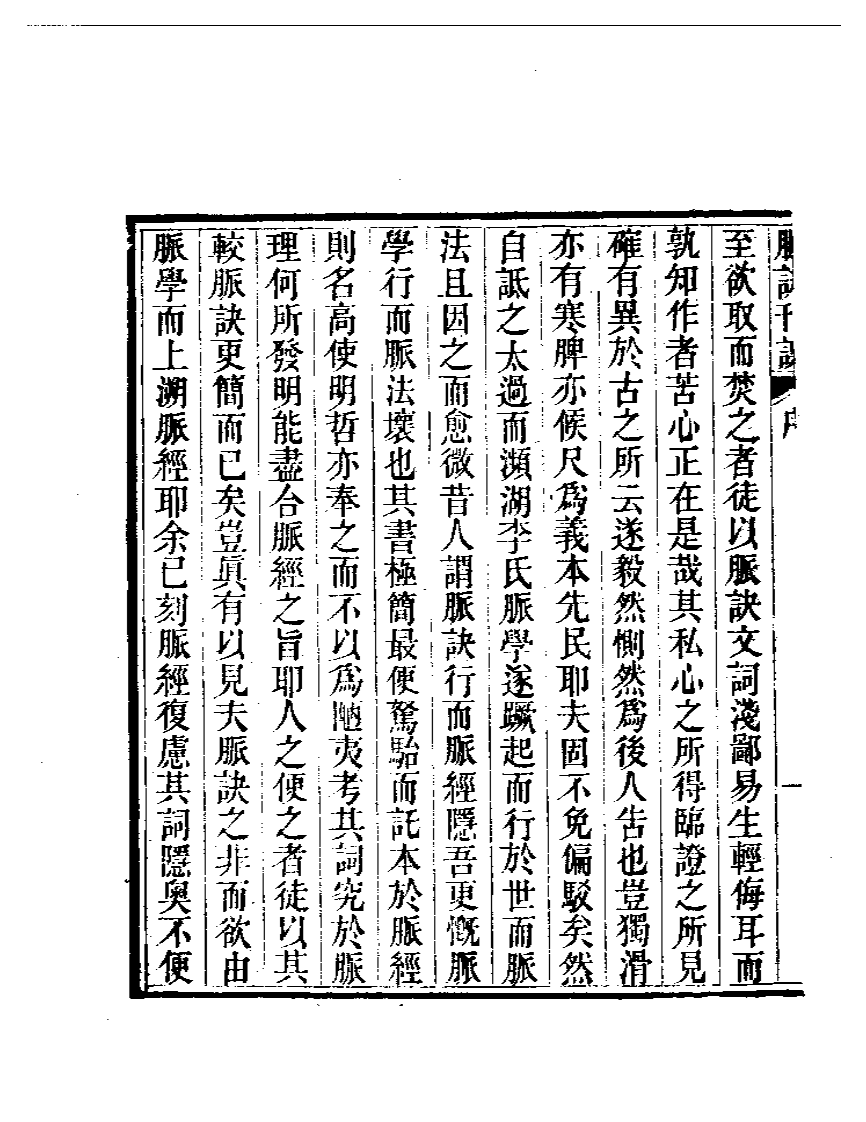 脈訣刊誤 序 一
至欲取而焚之者徒以脈訣文詞淺鄙易生輕侮耳而
孰知作者苦心正在是哉其私心之所得臨證之所見
確有異於古之所云遂毅然惻然爲後人告也豈獨滑
亦有寒脾亦候尺爲義本先民耶夫固不免偏駁矣然
自詆之太過而瀕湖李氏脈學遂蹶起而行於世而脈
法且因之而愈微昔人謂脈訣行而脈經隱吾更慨脈
學行而脈法壞也其書極簡最便駑駘而託本於脈經
則名高使明哲亦奉之而不以爲陋夷考其詞究於脈
理何所發明能盡合脈經之旨耶人之便之者徒以其
較脈訣更簡而已矣豈眞有以見夫脈訣之非而欲由
脈學而上溯脈經耶余已刻脈經復慮其詞隱奧不便